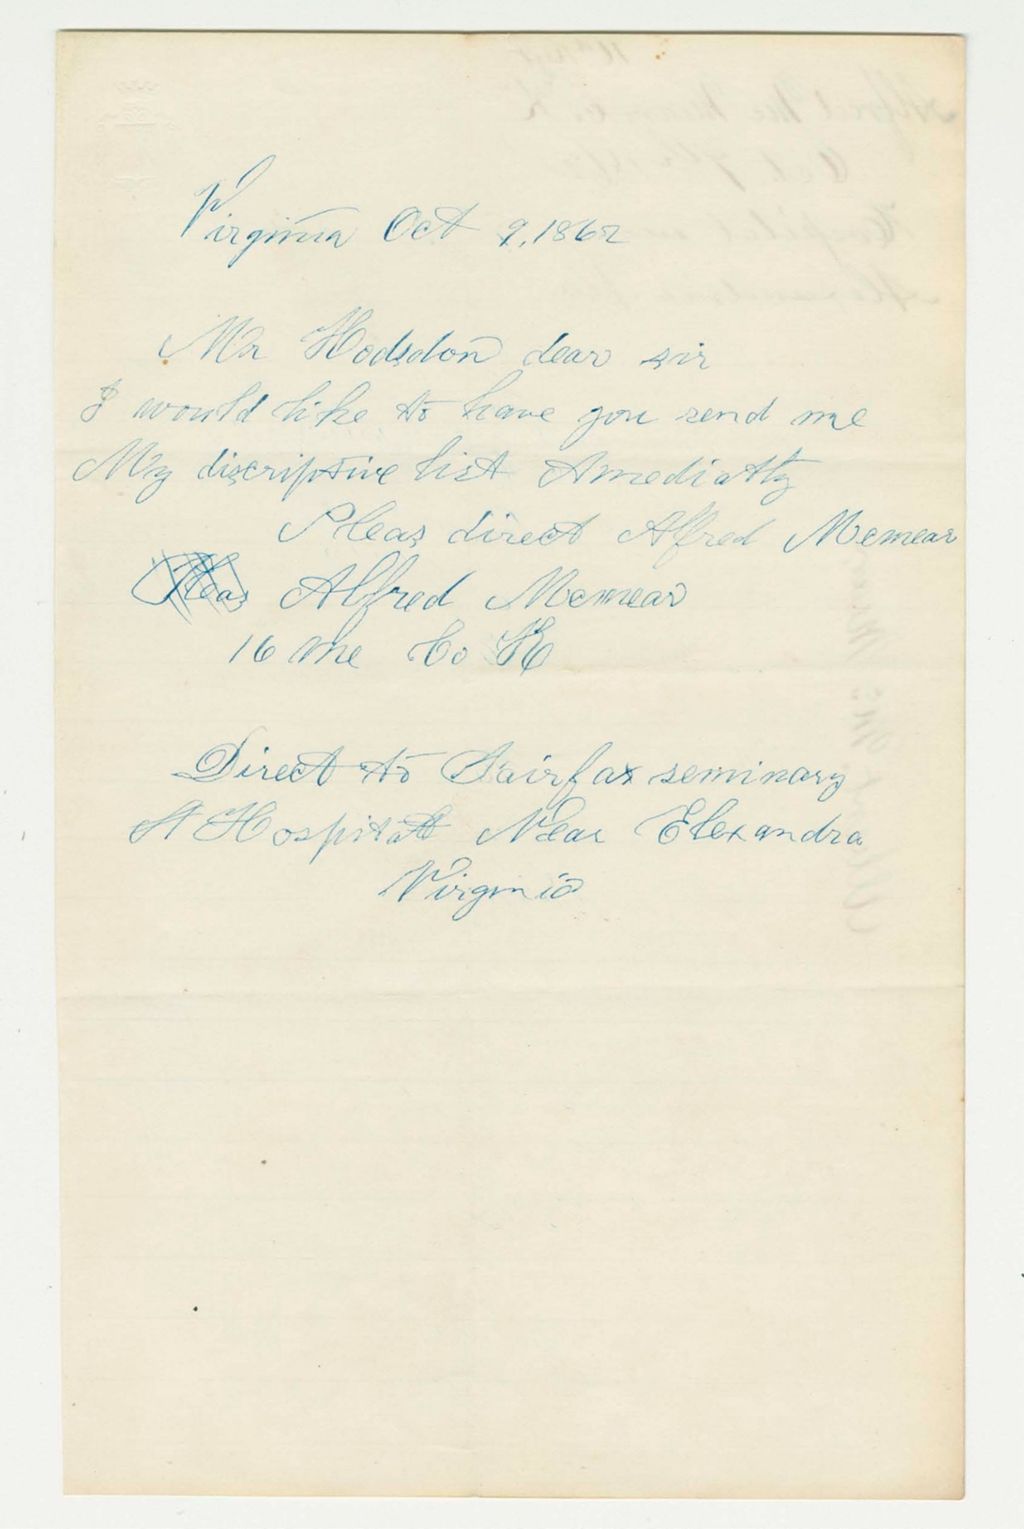 Virginia Oct 9, 1862
Mr Hodsdon dear sir
I would like to have you send me
My discriptive list Amediatly
Pleas direct Alfred Mcmear
Pleas Alfred Mcmear
16 Me Co K
Direct to Fairfax seminary
Hospital Near Elexandra
Virginia